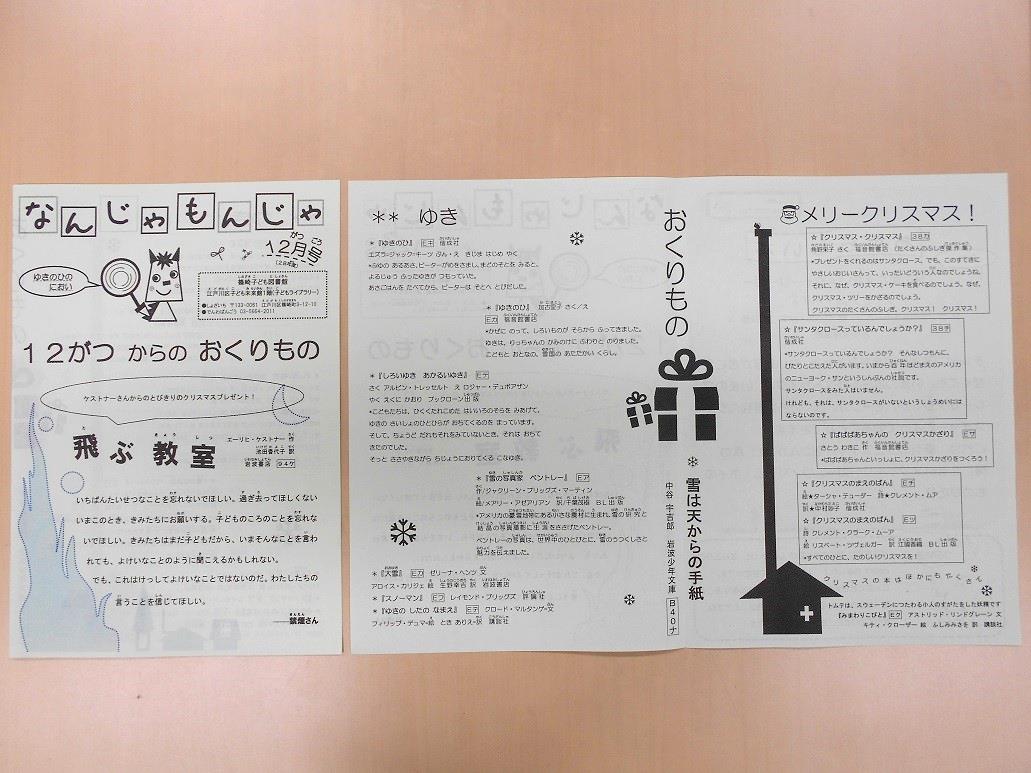 なんじゃもんじゃ
12月号
ゆきのひの
におい
篠崎子ども図書館
江戸川区子ども未来館1階(子どもライブラリー)
●じゅうしょ 〒133-0061 江戸川区篠崎町3-12-10
●でんわばんごう 03-5664-2011
12がつ からの おくりもの
ケストナーさんからのとびきりのクリスマスプレゼント!
飛ぶ教室
エーリヒ・ケストナー 作
池田香代子 訳
岩波書店 94ケ
いちばんたいせつなことを忘れないでほしい。過ぎ去ってほしくない
いまこのとき、きみたちにお願いする。子どものころのことを忘れな
いでほしい。きみたちはまだ子どもだから、いまそんなことを言わ
れても、よけいなことのように聞こえるかもしれない。
でも、これはけっしてよけいなことではないのだ。わたしたちの
言うことを信じてほしい。
――禁煙さん
** ゆき
*『ゆきのひ』 Eキ 偕成社
エズラ=ジャック=キーツ ぶん・え きじま はじめ やく
*ふゆの あるあさ、ピーターがめをさまし、まどのそとを みると、
よるじゅう ふったゆきが つもっていた。
あさごはんを たべてから、ピーターは そとへ とびだした。
*『ゆきのひ』 加古里子 さく/え
Eカ 福音館書店
*かぜに のって、しろいものが そらから ふってきました。
ゆきは、りっちゃんの かみのけに ふわりと のりました。
こどもと おとなの、雪国の あたたかい くらし。
*『しろいゆき あかるいゆき』 Eテ
さく アルビン・トレッセルト え ロジャー・デュボアザン
やく えくに かおり ブックローン出版
*こどもたちは、ひくくたれこめた はいいろのそらを みあげて、
ゆきの さいしょのひとひらが おちてくるのを まっています。
そして、ちょうど だれもそれをみていないとき、それは おちて
きたのでした。
そっと ささやきながら ちじょうにおりてくる こなゆき。
*『雪の写真家 ベントレー』 Eア
作/ジャクリーン・ブリッグズ・マーティン
絵/メアリー・アゼアリアン 訳/千葉茂樹 BL出版
*アメリカの豪雪地帯にある小さな農村に生まれ、雪の研究と
結晶の写真撮影に生涯をささげたベントレー。
ベントレーの写真は、世界中のひとびとに、雪のうつくしさと
魅力を伝えました。
*『大雪』 Eカ ゼリーナ・ヘンツ 文
アロイス・カリジェ 絵 生野幸吉 訳 岩波書店
*『スノーマン』 Eフ レイモンド・ブリッグズ 評論社
*『ゆきの したの なまえ』 Eテ クロード・マルタンゲ・文
フィリップ・デュマ・絵 とき ありえ・訳 講談社
おくりもの
雪は天からの手紙
中谷 宇吉郎 岩波少年文庫 B40ナ
メリークリスマス!
☆『クリスマス・クリスマス』 38カ
角野栄子 さく 福音館書店 (たくさんのふしぎ傑作集)
*プレゼントをくれるのはサンタクロース。でも、このすてきに
やさしいおじいさんって、いったいどういう人なのでしょうね。
それに、なぜ、クリスマス・ケーキを食べるのでしょう。なぜ、
クリスマス・ツリーをかざるのでしょう。
クリスマスのたくさんのふしぎ。クリスマス! クリスマス!
☆『サンタクロースっているんでしょうか?』 38チ
偕成社
*サンタクロースっているんでしょうか? そんなしつもんに、
ぴたりとこたえた人がいます。いまから百年ほどまえのアメリカ
のニューヨーク・サンというしんぶんの社説です。
サンタクロースをみた人はいません。
けれども、それは、サンタクロースがいないというしょうめいには
ならないのです。
☆『ばばばあちゃんの クリスマスかざり』 Eサ
さとう わきこ 作 福音館書店
*ばばばあちゃんといっしょに、クリスマスかざりをつくろう!
☆『クリスマスのまえのばん』 Eチ
絵★ターシャ・テューダー 詩★クレメント・ムア
訳★中村妙子 偕成社
☆『クリスマスのまえのばん』 Eツ
詩 クレメント・クラーク・ムーア
絵 リスベート・ツヴェルガー 訳 江國香織 BL出版
*すべてのひとに、たのしいクリスマスを!
クリスマスの本は ほかにもたくさん
トムテは、スウェーデンにつたわる小人のすがたをした妖精です
『みまわりこびと』 Eク アストリッド・リンドグレーン 文
キティ・クローザー 絵 ふしみみさを 訳 講談社